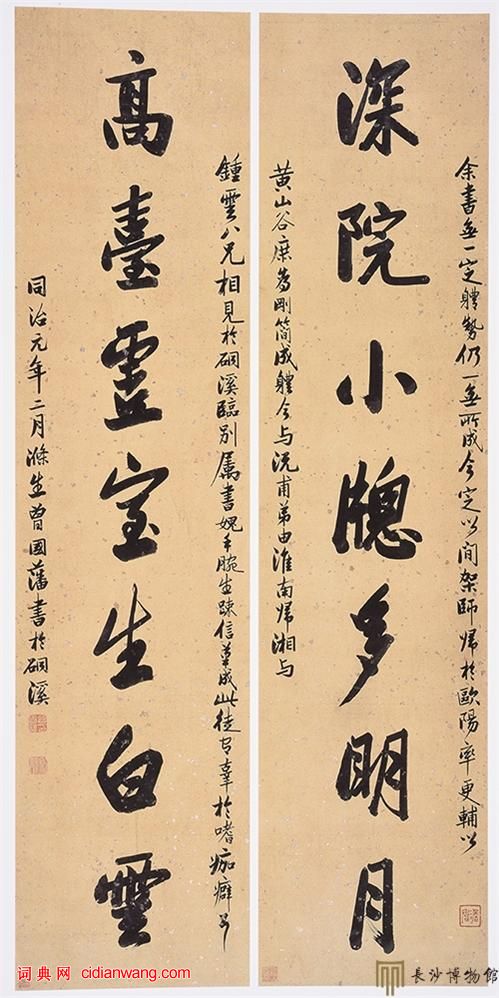 余書無一定體勢仍一無所成今定以間架師歸於歐陽率更輔以
深院小牕多明月
黃山谷庶為剛簡成體今与沅甫弟由淮南帰湘与
鍾雲八兄相見於硐溪臨別屬書媿手腕生疎信筆成此徒有辜於嗜痂癖耳
高臺虛室生白雲
同治元年二月滌生曾國藩書於硐溪
词典网 cidianwang.com
長沙博物館